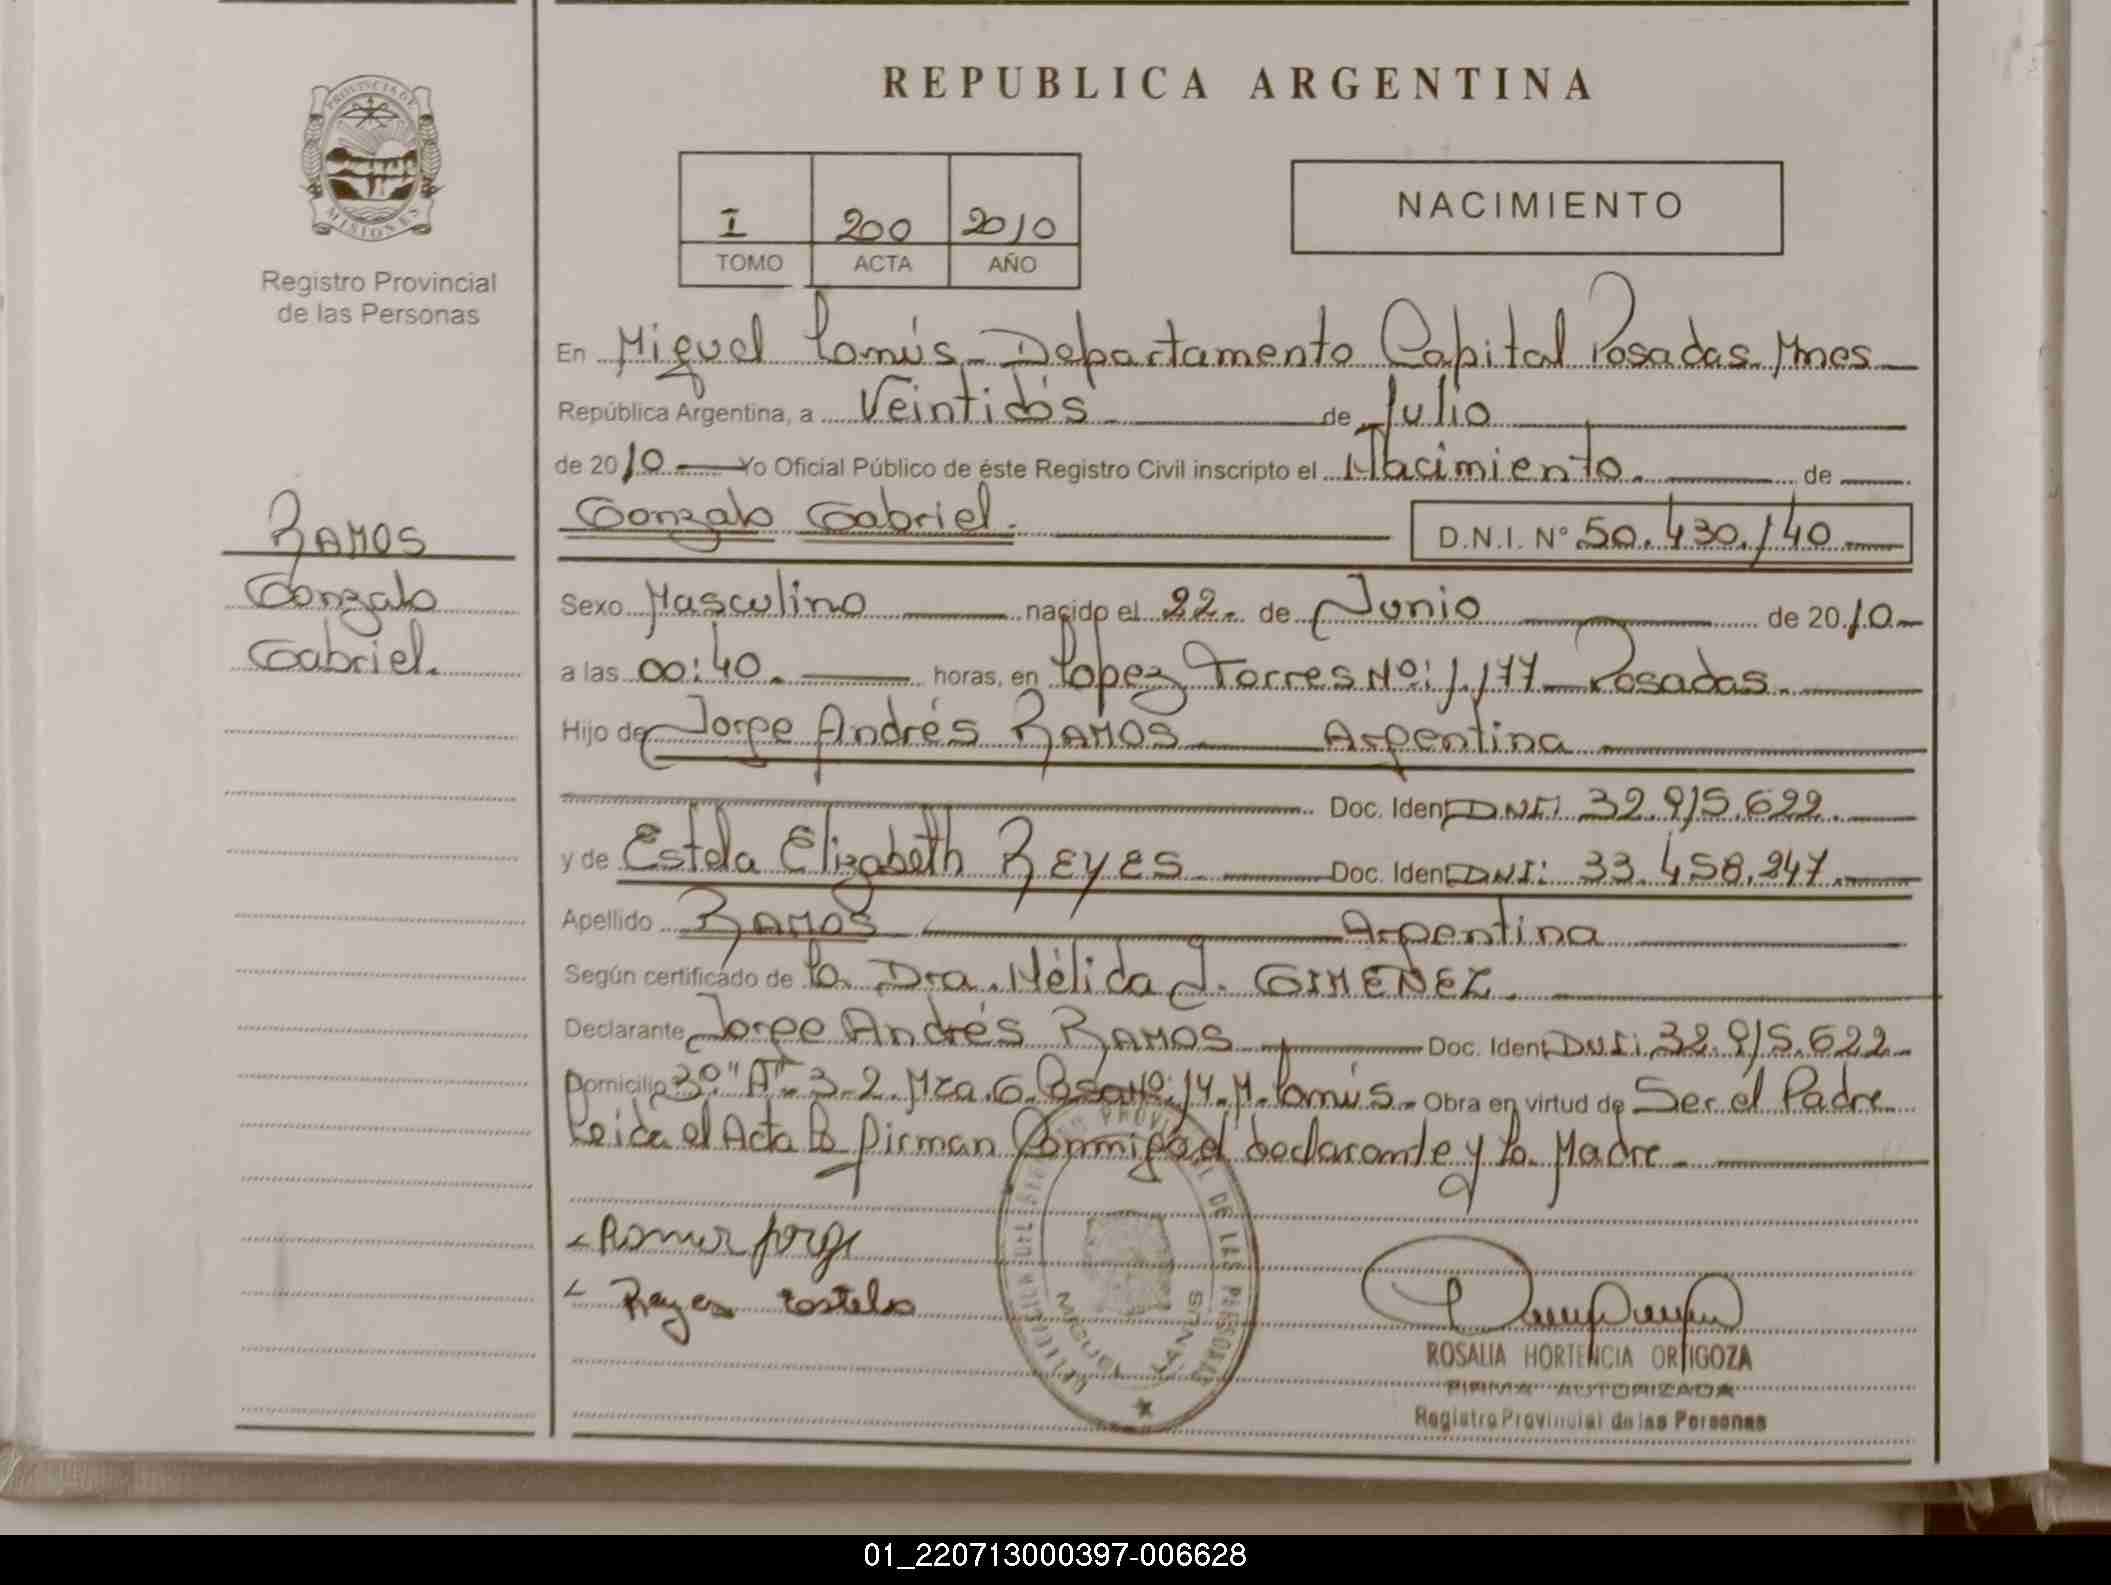 REPUBLICA ARGENTINA
PROVINCIA DE
MISIONES
Registro Provincial
de las Personas
I 200 2010
TOMO ACTA AÑO
NACIMIENTO
En Miguel Lanús - Departamento Capital Posadas Mnes
República Argentina, a Veintidós de Julio
de 2010 Yo Oficial Público de éste Registro Civil inscripto el Nacimiento. de
Gonzalo Gabriel. D.N.I. N° 50.430.140
RAMOS
Gonzalo
Gabriel.
Sexo Masculino nacido el 22- de Junio de 2010
a las 00:40. horas, en Lopez Torres Nº: 1.177 - Posadas.
Hijo de Jorge Andrés RAMOS Argentina
Doc. Ident DNI: 32.915.622.
y de Estela Elizabeth REYES Doc. Ident DNI: 33.458.247.
Apellido RAMOS Argentina
Según certificado de la Dra. Nélida J. GIMENEZ.
Declarante Jorge Andrés RAMOS Doc. Ident DNI: 32.915.622
Domicilio 3º "A" - 3-2. Mza. 6. Casa Nº: 14. M. Lanús. Obra en virtud de Ser el Padre
Leida el Acta la firman Conmigo el declarante y la Madre
Ramos Jorge
Reyes Estela
DE LAS PERSONAS
MIGUEL LANUS
ROSALIA HORTENCIA ORTIGOZA
FIRMA AUTORIZADA
Registro Provincial de las Personas
01_220713000397-006628